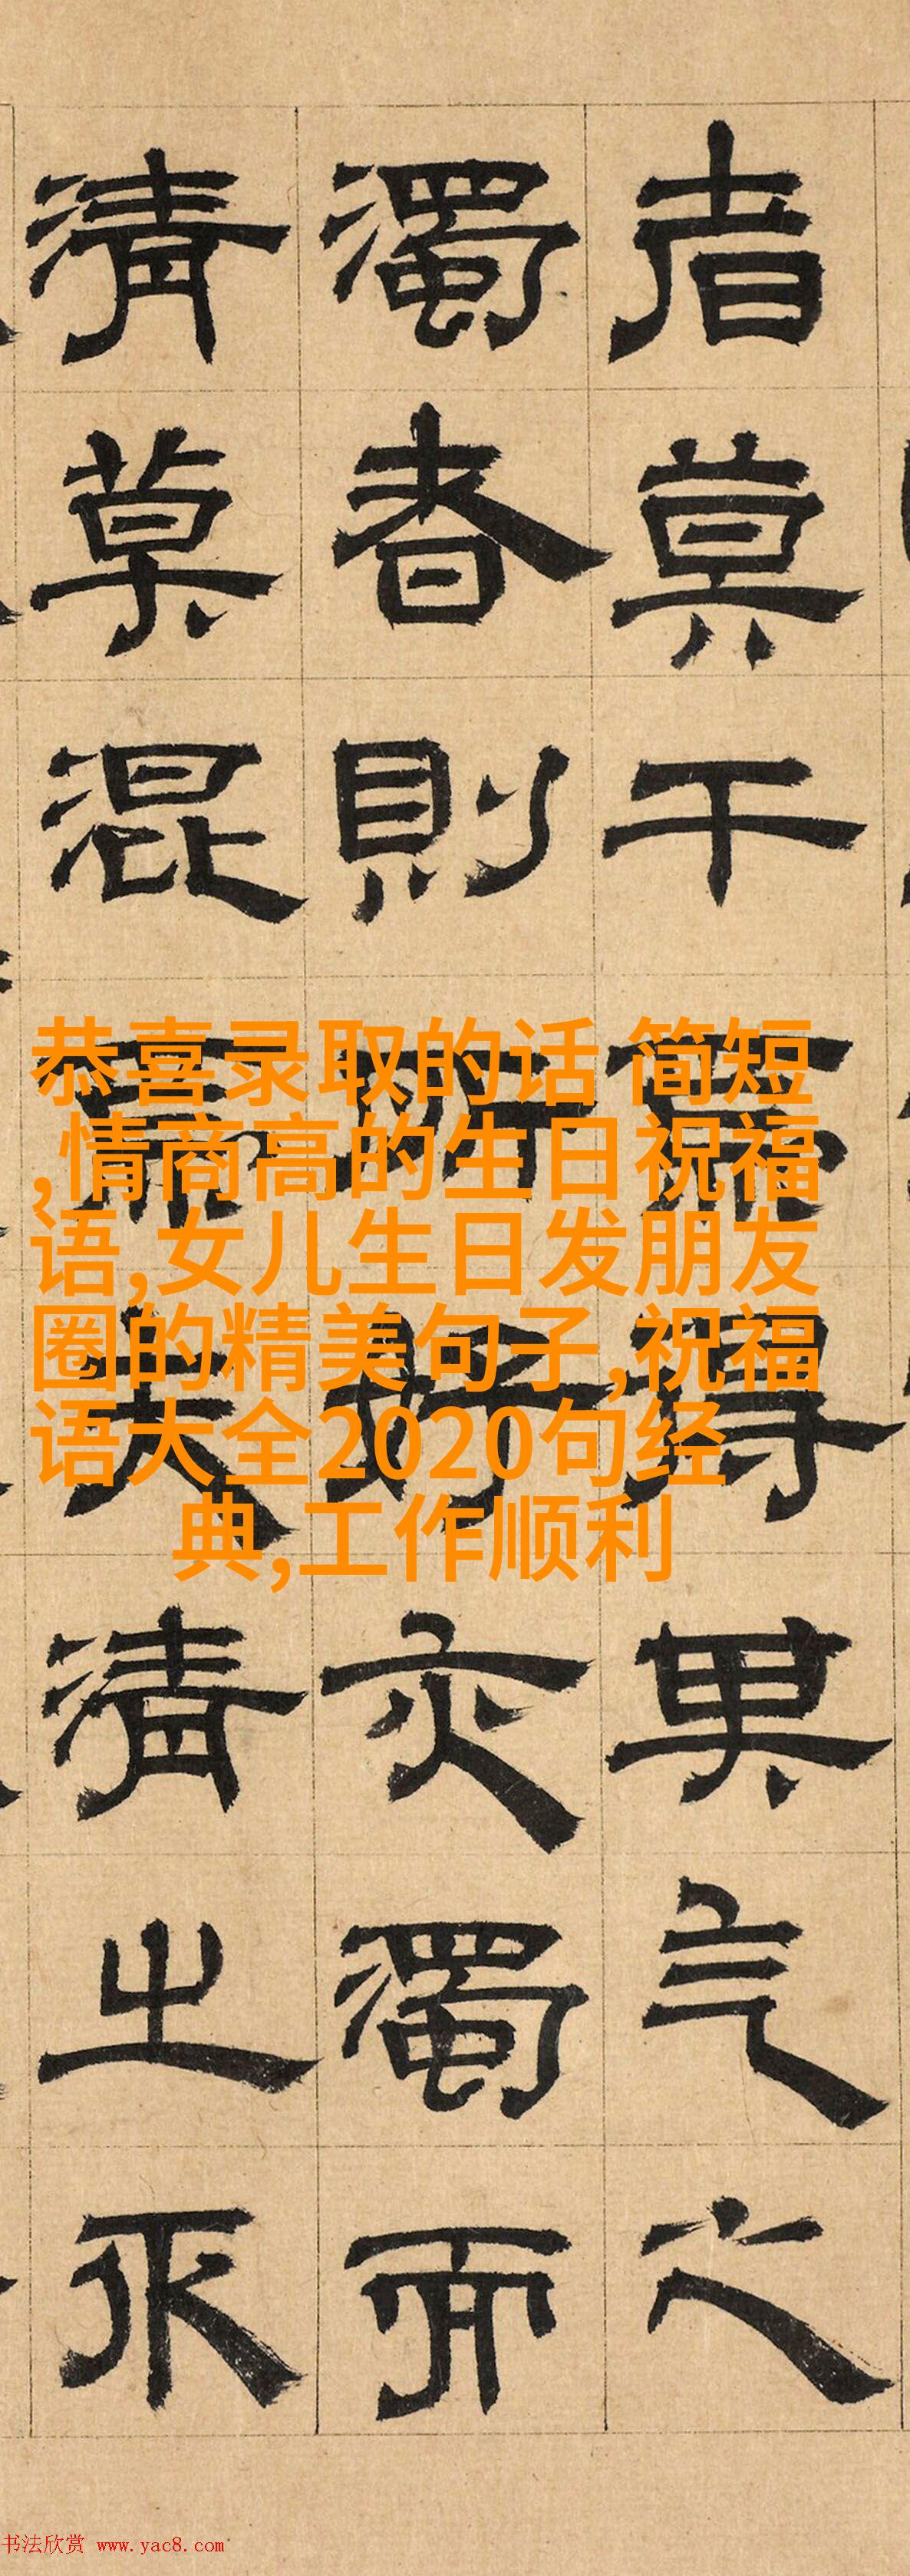 者莫干焉得其气之
濁者則所好亦濁而
清莫混焉夫清之
恭喜录取的话 简短
,情商高的生日祝福
语,女儿生日发朋友
圈的精美句子,祝福
语大全2020句经
典,工作顺利
书法欣赏 www.yac8.com